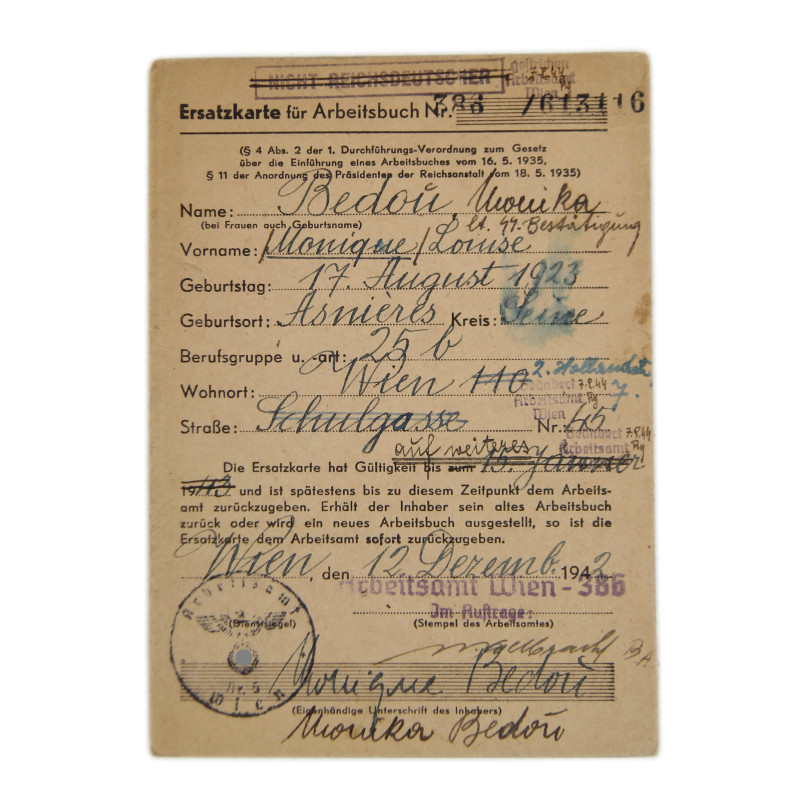 NICHT REICHSDEUTSCHER
gestrichen 7.2.44
Arbeitsamt
Wien
Ersatzkarte für Arbeitsbuch Nr. 386 /613116
(§ 4 Abs. 2 der 1. Durchführungs-Verordnung zum Gesetz
über die Einführung eines Arbeitsbuches vom 16. 5. 1935,
§ 11 der Anordnung des Präsidenten der Reichsanstalt vom 18. 5. 1935)
Name: Bedoů, Monika
(bei Frauen auch Geburtsname) lt. Bestätigung
Vorname: /Monique/ Louise
Geburtstag: 17. August 1923
Geburtsort: Asnières Kreis: Seine
Berufsgruppe u. -art: 25 b
Wohnort: Wien 110 2. Hollandstr
Geändert 7.2.44 7.
Arbeitsamt
Wien
Straße: Schulgasse Nr. 65
Geändert 7.2.44
Arbeitsamt
auf weiteres
Die Ersatzkarte hat Gültigkeit bis zum 15. Jänner
1943 und ist spätestens bis zu diesem Zeitpunkt dem Arbeits-
amt zurückzugeben. Erhält der Inhaber sein altes Arbeitsbuch
zurück oder wird ein neues Arbeitsbuch ausgestellt, so ist die
Ersatzkarte dem Arbeitsamt sofort zurückzugeben.
Wien, den 12. Dezemb. 1942
Arbeitsamt Wien - 386
Im Auftrage:
(Dienstsiegel) (Stempel des Arbeitsamtes)
Arbeitsamt
Nr. 5
Wien
Monique Bedoů
(Eigenhändige Unterschrift des Inhabers)
Monika Bedoů